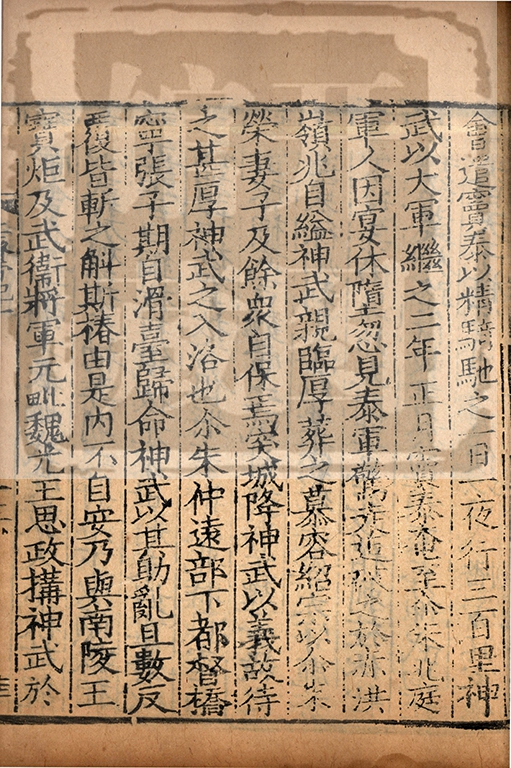 會遣竇泰以精騎馳之一日一夜行三百里神
武以大軍繼之二年正月竇泰奄至尒朱兆庭
軍人因宴休墮忽見泰軍驚走追破之於赤洪
嶺兆自縊神武親臨厚葬之慕容紹宗以尒朱
榮妻子及餘衆自保焉突城降神武以義故待
之甚厚神武之入洛也尒朱仲遠部下都督橋
寧張子期自滑臺歸命神武以其助亂且數反
覆皆斬之斛斯椿由是內不自安乃與南陵王
寶炬及武衛將軍元毗魏光王思政搆神武於